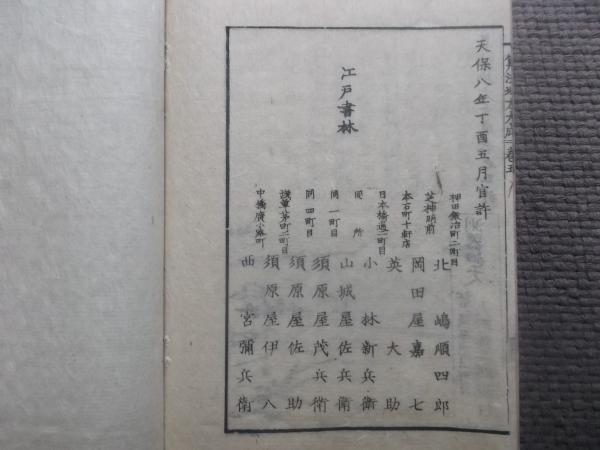 天保八年丁酉五月官許
江戸書林
神田鍛冶町二町目 北嶋順四郎
芝神明前 岡田屋嘉七
本石町十軒店 英大助
日本橋通二町目 小林新兵衛
同所 山城屋佐兵衛
同一町目 須原屋茂兵衛
同四町目 須原屋佐助
浅草茅町二町目 須原屋伊八
中橋廣小路町 西宮彌兵衛